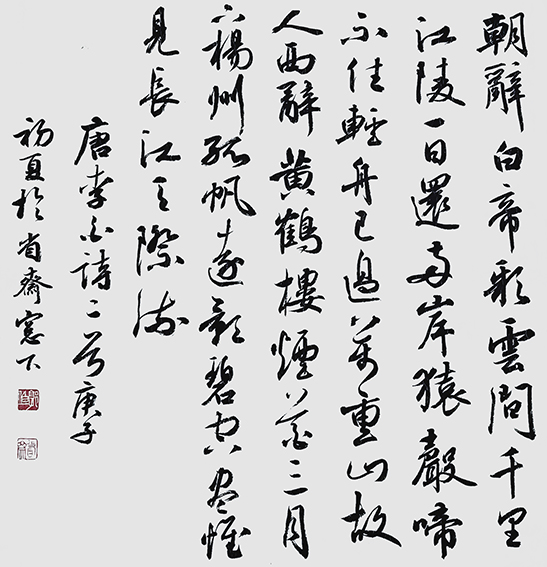 朝辭白帝彩雲間千里
江陵一日還兩岸猿聲啼
不住輕舟已過萬重山故
人西辭黃鶴樓煙花三月
下楊州孤帆遠影碧空盡惟
見長江天際流
唐李白詩二首庚子
初夏於省齋窗下